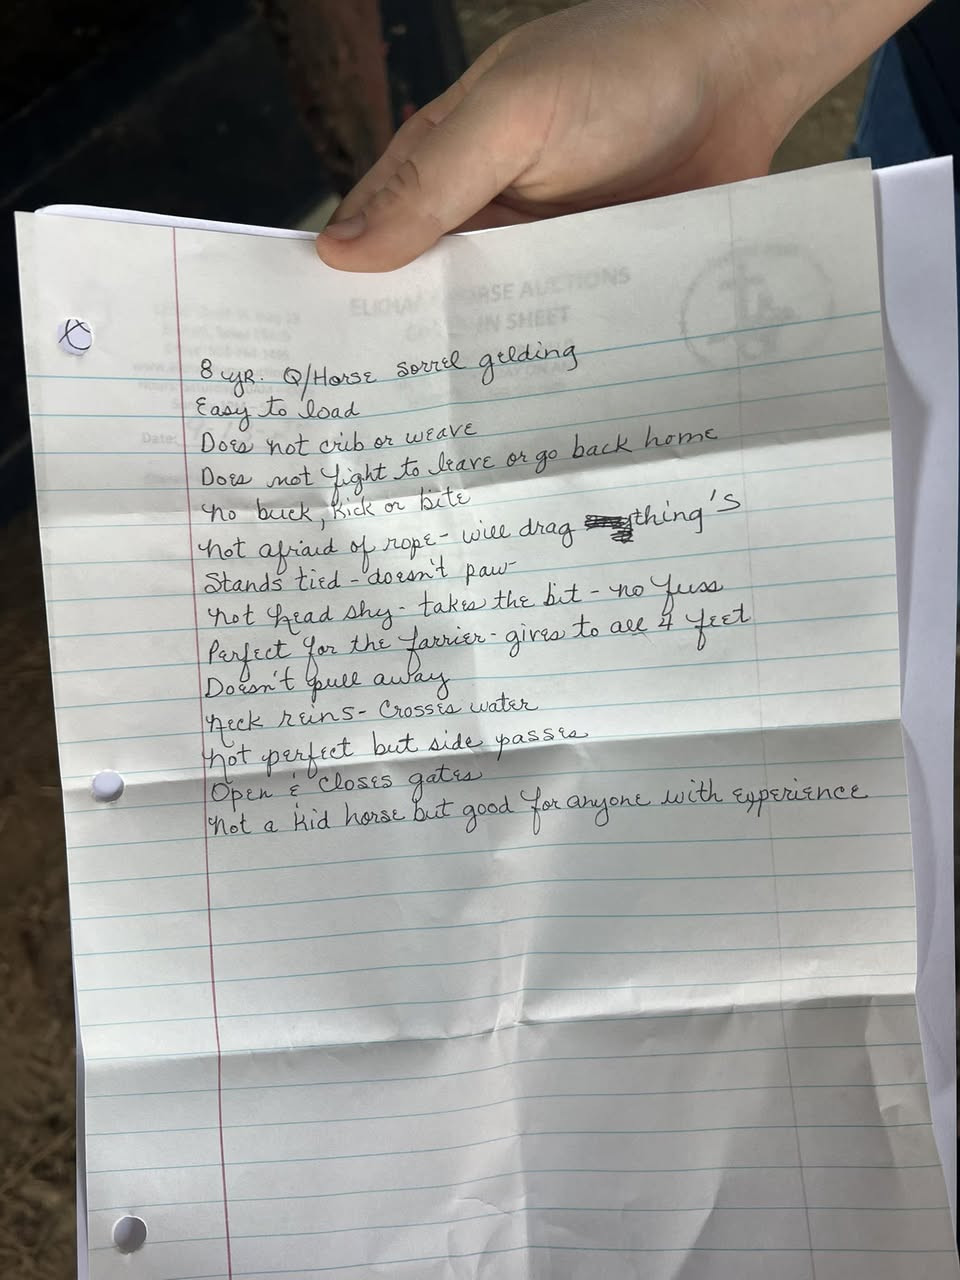 ELKHA HORSE AUCTIONS
IN SHEET
Date:
8 YR. Q/Horse sorrel gelding
Easy to load
Does not crib or weave
Does not fight to leave or go back home
no buck, kick or bite
not afraid of rope - will drag thing's
Stands tied - doesn't paw
not head shy - takes the bit - no fuss
Perfect for the farrier - gives to all 4 feet
Doesn't pull away
Neck reins - Crosses water
not perfect but side passes
Open & Closes gates
not a kid horse but good for anyone with experience